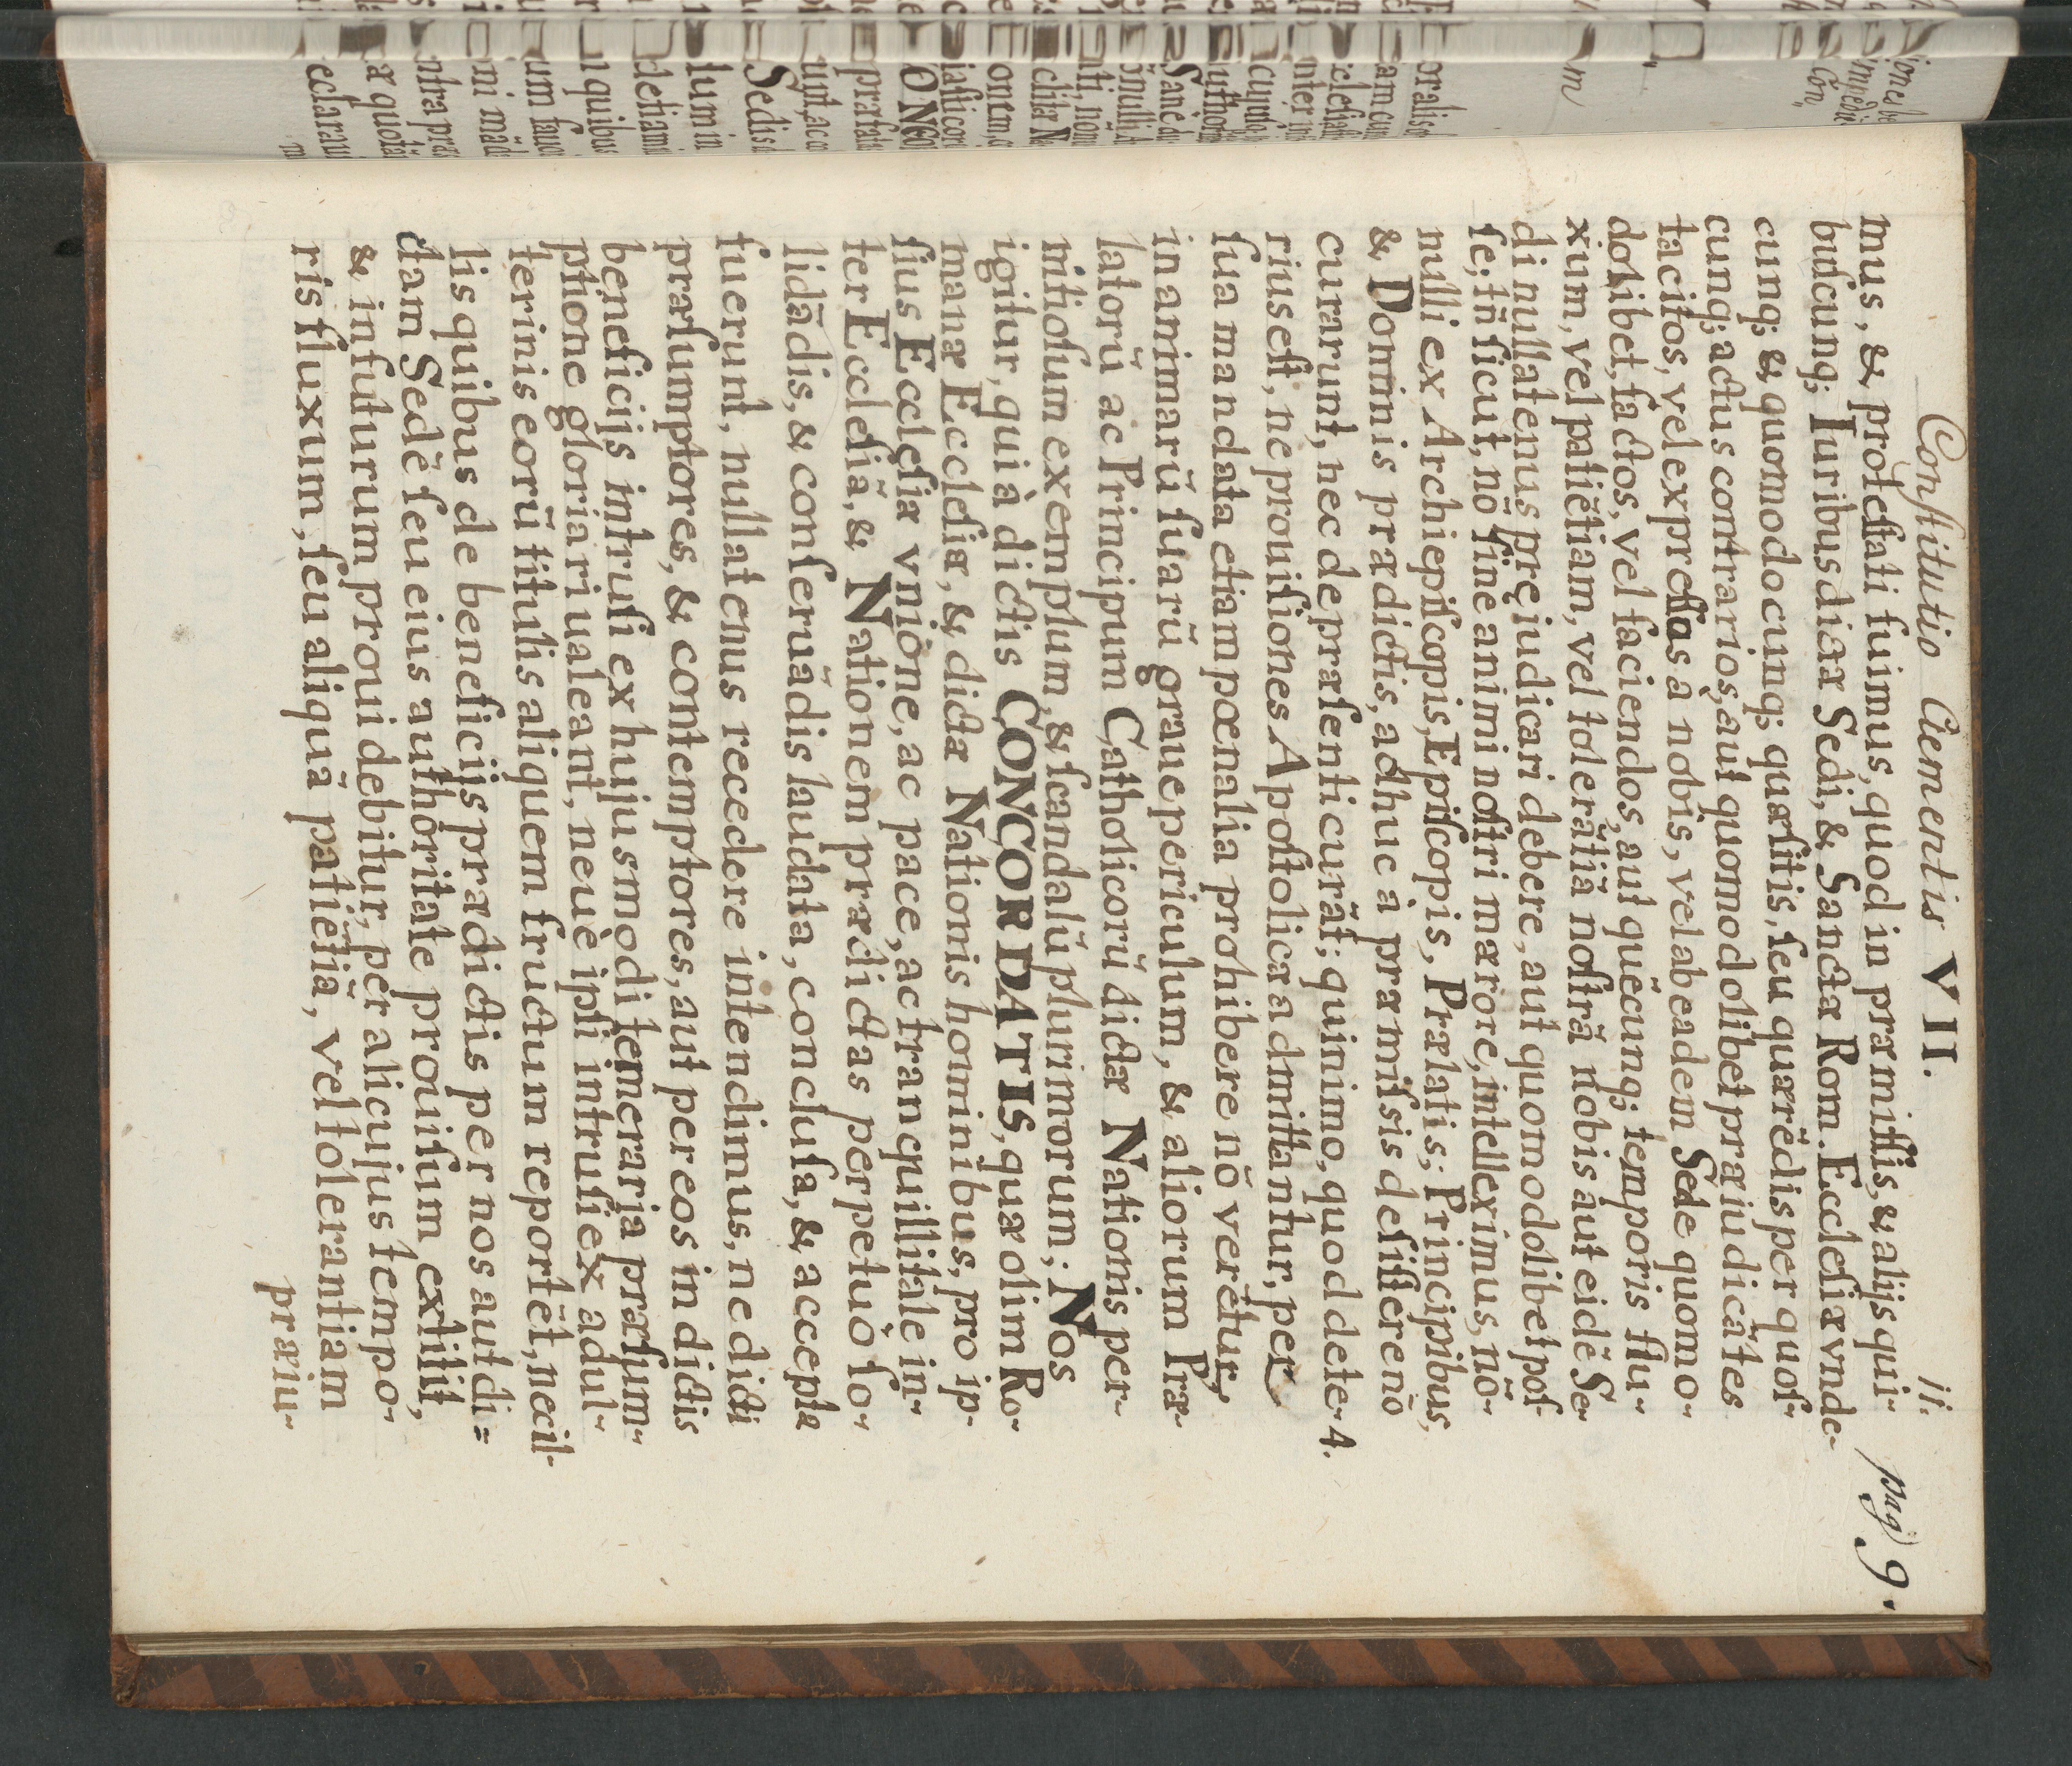 Constitutio Clementis VII. ii.
pag) 9.
mus, & protestati fuimus, quod in præmissis, & alijs qui-
buscunq; Iuribus dictæ Sedi, & Sanctæ Rom. Ecclesiæ vnde-
cunq; & quomodocunq; quæsitis, seu quærẽdis per quos-
cunq; actus contrarios, aut quomodolibet præiudicãtes
tacitos, vel expressos a nobis, vel ab eadem Sede quomo-
dolibet, factos, vel faciendos, aut quẽcunq; temporis flu-
xum, vel patiẽtiam, vel tolerãtiã nostrã nobis aut eidẽ Se-
di nullatemus pręiudicari debere, aut quomodolibet pos-
se; tñ sicut, nõ sine animi nostri mærore, intelleximus, nõ-
nulli ex Archiepiscopis, Episcopis, Prælatis; Principibus,
& Dominis prædictis, adhuc à præmissis desistere nõ
curarunt, nec de præsenti curãt; quinimo, quod dete- 4.
rius est, ne prouisiones Apostolicæ admittantur, per
sua mandata etiam pœnalia prohibere nõ veretur,
in animarũ suarũ graue periculum, & aliorum Præ-
latorũ ac Principum Catholicorũ dictæ Nationis per-
nitiosum exemplum, & scandalũ plurimorum; Nos
igitur, qui à dictis CONCORDATIS, quæ olim Ro-
manæ Ecclesiæ, & dictæ Nationis hominibus, pro ip-
sius Ecclesiæ vnione, ac pace, ac tranquillitate in-
ter Ecclesiã, & Nationem prædictas perpetuò so-
lidãdis, & conseruãdis laudata, conclusa, & accepta
fuerunt, nullatenus recedere intendimus, ne dicti
præsumptores, & contemptores, aut per eos in dictis
beneficijs intrusi ex hujusmodi temeraria præsum-
ptione gloriari ualeant, neuè ipsi intrusi ex adul-
terinis eorũ titulis aliquem fructum reportẽt, nec il-
lis quibus de beneficiis prædictis per nos aut di=
ctam Sedẽ seu eius authoritate prouisum extitit,
& in futurum prouidebitur, per alicujus tempo-
ris fluxum, seu aliquã patiẽtiã, vel tolerantiam
præiu-